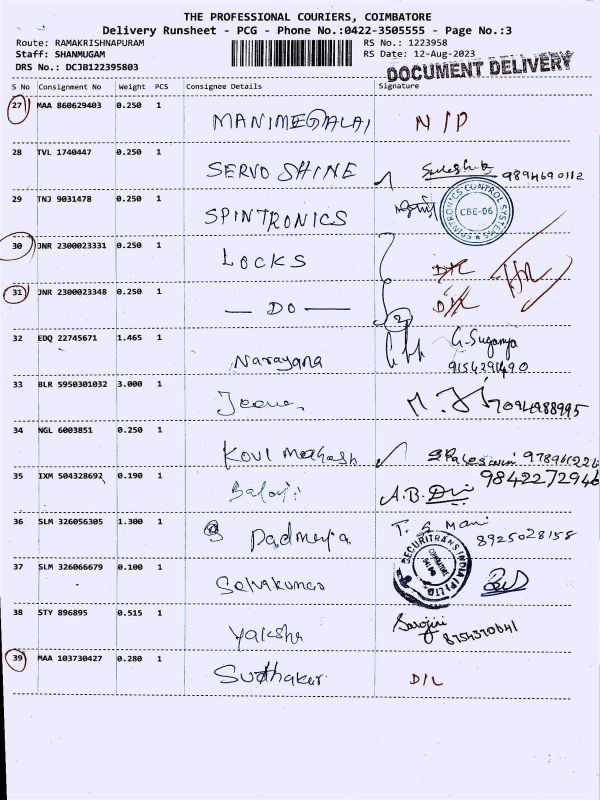 THE PROFESSIONAL COURIERS, COIMBATORE
Delivery Runsheet - PCG - Phone No.:0422-3505555 - Page No.:3
Route: RAMAKRISHNAPURAM RS No.: 1223958
Staff: SHANMUGAM RS Date: 12-Aug-2023
DRS No.: DCJB122395803 DOCUMENT DELIVERY
S No Consignment No Weight PCS Consignee Details Signature
27 MAA 860629403 0.250 1 MANIMEGALAI N/P
28 TVL 1740447 0.250 1 SERVO SHINE 9894690112
29 TNJ 9031478 0.250 1 SPINTRONICS
SPINTRONICS CONTROL SYSTEMS
CBE-06
30 JNR 2300023331 0.250 1 LOCKS D/L
31 JNR 2300023348 0.250 1 — DO — D/L
2
32 EDQ 22745671 1.465 1 Narayana G. Suganya
9154291490
33 BLR 5950301032 3.000 1 7094988995
34 NGL 6003851 0.250 1 Kovi Mahesh
35 IXM 504328692 0.190 1 Balaji A.B. 9842272946
36 SLM 326056305 1.300 1 Padmeja T. S Mani
8925028158
37 SLM 326066679 0.100 1 Selvakumar
SECURITRANS INDIA (P) LTD.
COIMBATORE
38 STY 896895 0.515 1 Yaksha Sarojini
8754370641
39 MAA 103730427 0.280 1 Sudhakar D/L